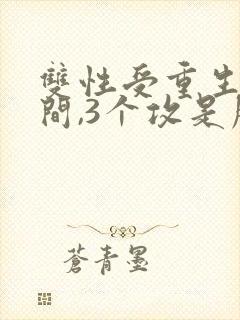 雙性受重生
間,3个攻是
蒼青墨